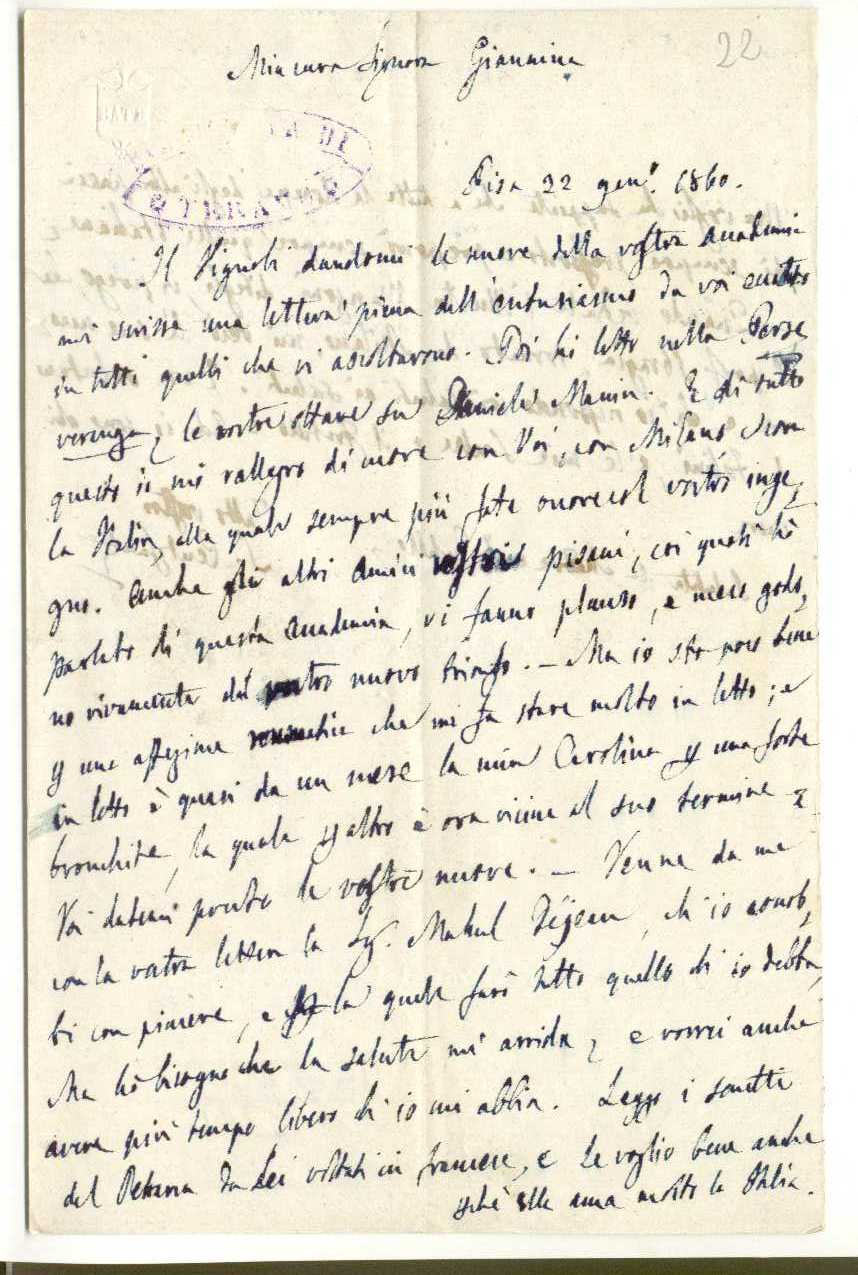 22
Mia cara Signora Giannina
Pisa 22 gen.º 1860.
Il Vignoli dandomi le nuove della vostra accademia
mi scrisse una lettera piena dell'entusiasmo da voi
in tutti quelli che vi ascoltarono. Poi hò letto nella Perse
veranza, le vostre ottave su Daniele Manin. E di tutto
questo io mi rallegro di cuore con Voi, con Milano, e con
la Italia, alla quale sempre più fate onore col vostro inge,
gno. Anche gli altri amici vostri pisani, coi quali hò
parlato di questa accademia, vi fanno plauso, e meco godo,
no vivamente del vostro nuovo trionfo. — Ma io sto poco bene
p una affezione reumatica che mi fa stare molto in letto; e
in letto è quasi da un mese la mia Carolina p una forte
bronchite, la quale p altro è ora vicina al suo termine
Voi datemi presto le vostre nuove. — Venne da me
con la vostra lettera la Sig. Mahul Dejean, ch'io conob,
bi con piacere, e p la quale farò tutto quello ch'io debba,
Ma hò bisogno che la salute mi arrida, e vorrei anche
avere più tempo libero ch'io mi abbia. Leggo i sonetti
del Petrarca da Lei voltati in francese, e Le voglio bene anche
pchè ella ama molto la Italia.